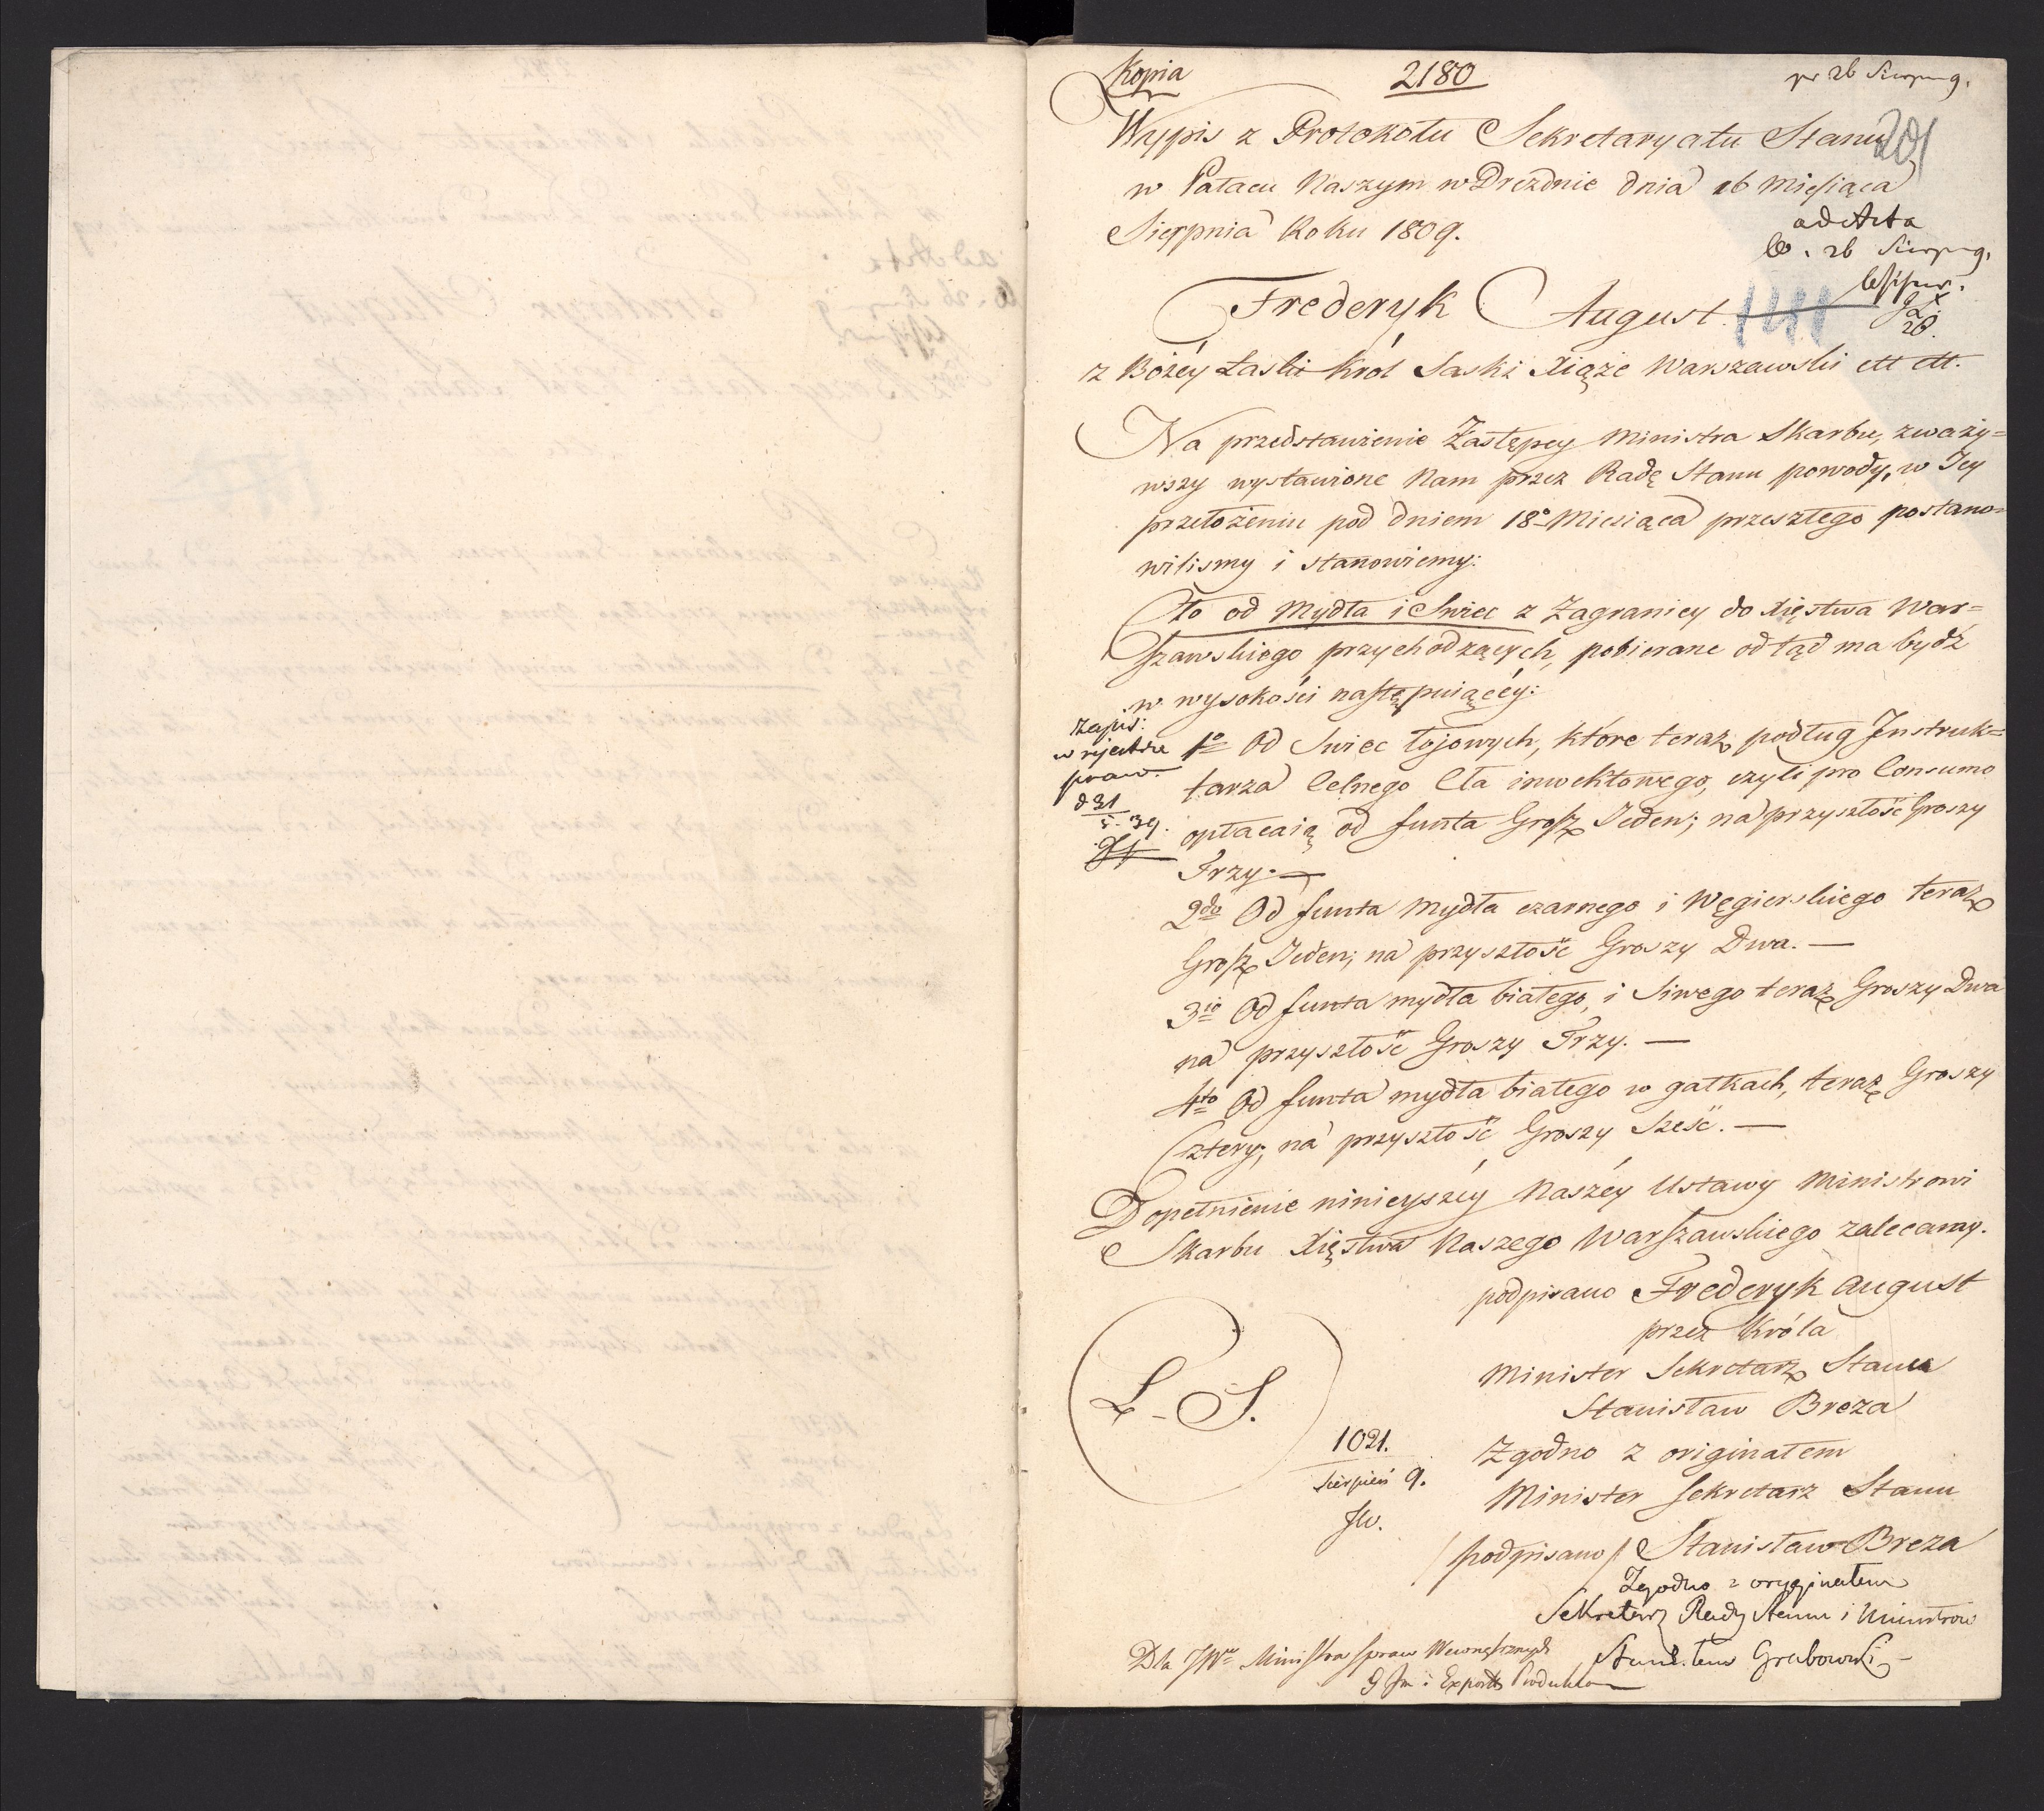 Kopia
2180
pr 26 Sierpn 9.
Wypis z Protokołu Sekretaryatu Stanu
201
w Pałacu Naszym w Dreźnie dnia 16 Miesiąca
Sierpnia Roku 1809.
ad Acta
26 Sierpn 9.
Frederyk August
z Bożéy Łaski Król Saski Xiąże Warszawski ett ett.
Na przedstawienie Zastępcy Ministra Skarbu, zważy=
wszy wystawione Nam przez Radę Stanu powody, w Jey
przełożeniu pod dniem 18º Miesiąca przeszłego postano=
wilismy i stanowiemy:
Cło od Mydła i Swiec z Zagranicy do Xięstwa War=
szawskiego przychodzących, pobierane odtąd ma bydź
w wysokości następuiącéy:
Zapis:
w rejestrze
praw.
1º Od Swiec łojowych, które teraz podług Instruk=
tarza Celnego Cła inwektowego, czyli pro Consumo
opłacaią od funta Grosz Jeden; na przyszłość Groszy
Trzy. —
2do Od funta Mydła czarnego i Węgierskiego teraz
Grosz Jeden; na przyszłość Groszy Dwa. —
3io Od funta mydła białego, i Siwego teraz Groszy Dwa
na przyszłość Groszy Trzy. —
4to Od funta mydła białego w gałkach, teraz Groszy
Cztery; na przyszłość Groszy Sześć. —
Dopełnienie ninieyszéy Naszéy Ustawy Ministrowi
Skarbu Xięstwa Naszego Warszawskiego zalecamy.
podpisano Frederyk August
przez Króla
Minister Sekretarz Stanu
Stanisław Breza
L. S.
1021.
Sierpień 9.
Zgodno z originałem
Minister Sekretarz Stanu
/podpisano/ Stanisław Breza
Zgodno z oryginałem
Sekretarz Rady Stanu i Ministrów
Stanisław Grabowski
Dla JWo Ministra Spraw Wewnętrznych